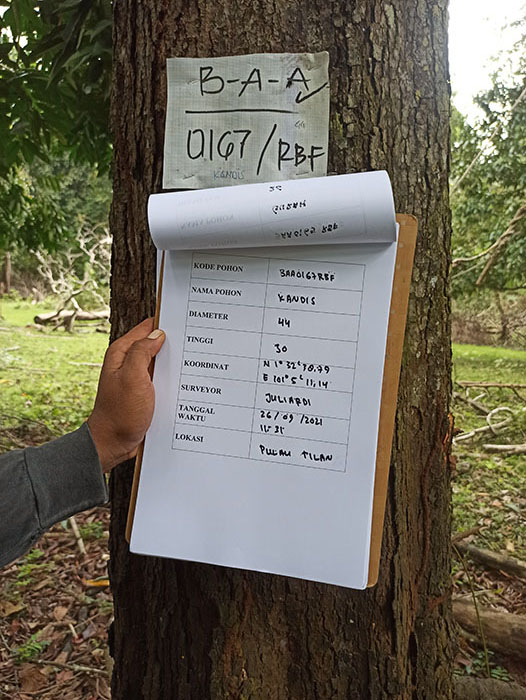 B-A-A
0167/RBF
KANDIS
KODE POHON BAA0167RBF
NAMA POHON KANDIS
DIAMETER 44
TINGGI 30
KOORDINAT
E 101° 5' 11,14
SURVEYOR JULIARDI
TANGGAL 26/09/2021
WAKTU
LOKASI PULAU TILAN